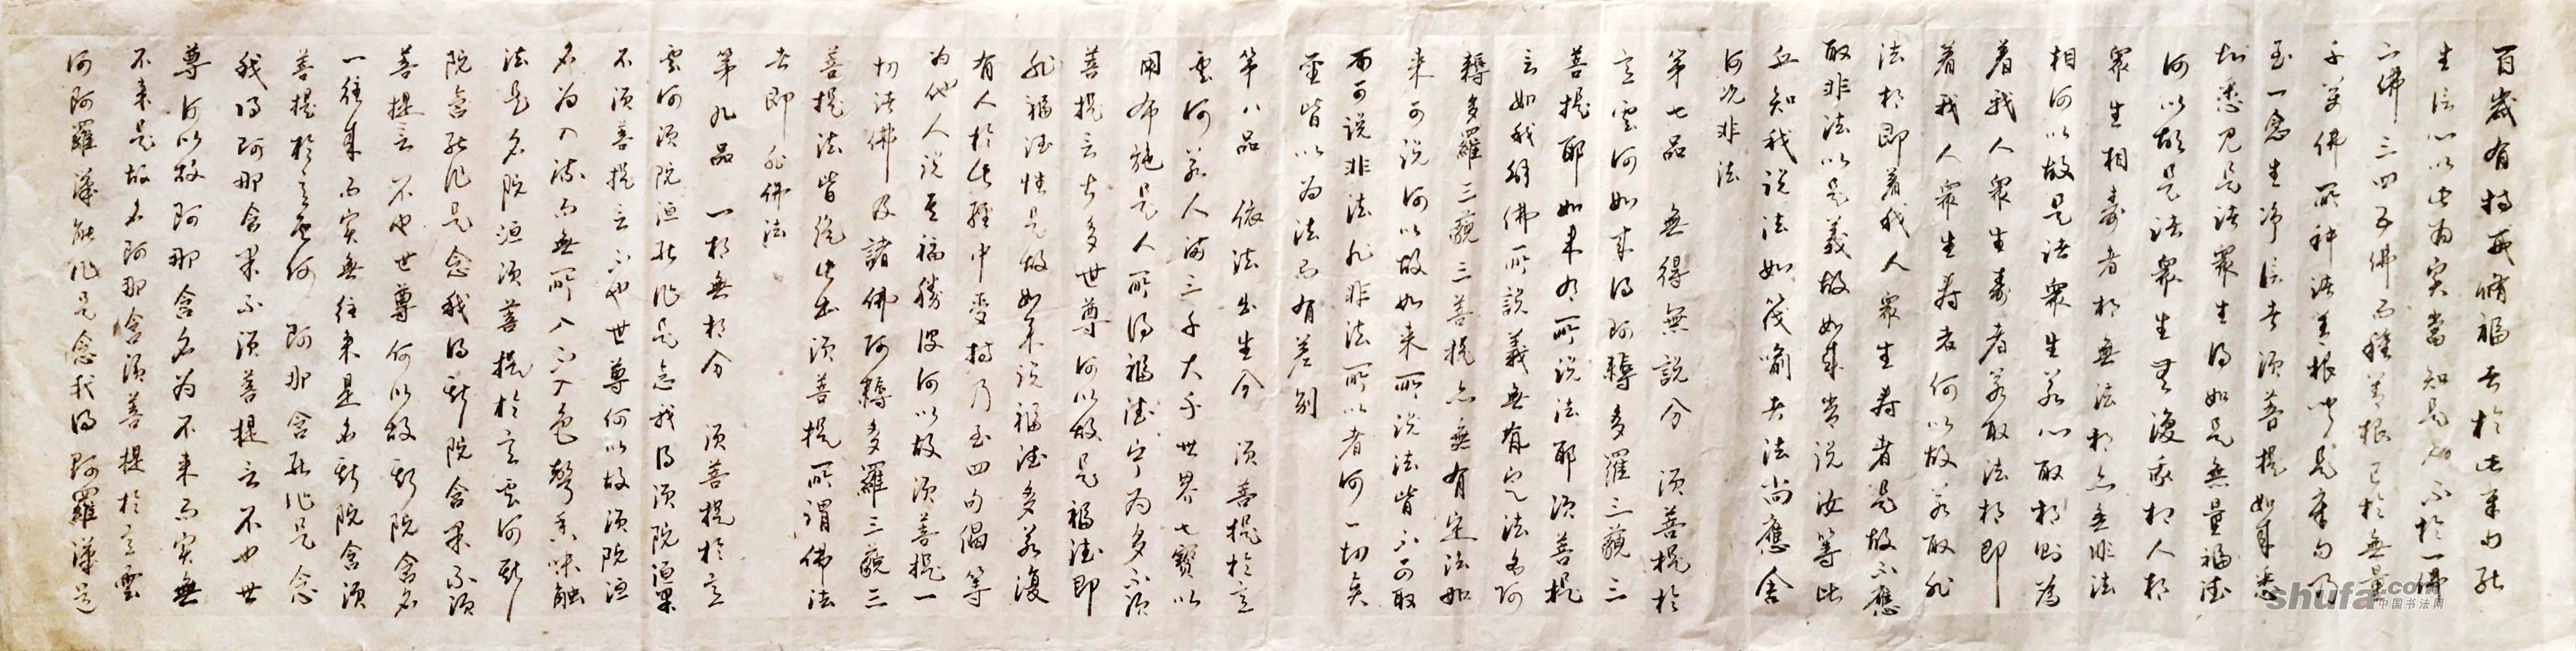 百歲有持戒脩福者於此章句能
生信心以此為實當知是人不於一佛
二佛三四五佛而種善根已於無量
千万佛所种諸善根聞是章句乃
至一念生净信者須菩提如來悉
知悉見是諸眾生得如是無量福德
何以故是諸眾生無復我相人相
眾生相壽者相無法相亦無非法
相何以故是諸眾生若心取相則為
着我人眾生壽者若取法相即
着我人眾生壽者何以故若取非
法相即着我人眾生壽者是故不應
取非法以是義故如來常说汝等比
丘知我說法如筏喻者法尚應舍
何况非法
第七品 無得無說分 須菩提於
意雲何如來得阿耨多羅三藐三
菩提耶如来有所说法耶須菩提
言如我解佛所說義無有定法名阿
耨多羅三藐三菩提亦無有定法如
来可说何以故如来所说法皆不可取
不可说非法非非法所以者何一切贤
聖皆以为法而有差别
第八品 依法出生分 須菩提於意
雲何若人满三千大千世界七寶以
用布施是人所得福德寧为多不須
菩提言甚多世尊何以故是福德即
非福德性是故如来说福德多若復
有人於此經中受持乃至四句偈等
为他人说其福勝彼何以故須菩提一
切諸佛及諸佛阿耨多羅三藐三
菩提法皆從此出須菩提所謂佛法
者即非佛法
第九品 一相無相分 須菩提於意
雲何須陀洹能作是念我得須陀洹果
不須菩提言不也世尊何以故須陀洹
名为入流而無所入不入色聲香味触
法是名須陀洹須菩提於意雲何斯
陀含能作是念我得斯陀含果不須
菩提言不也世尊何以故斯陀含名
一往来而实無往来是名斯陀含須
菩提於意雲何阿那含能作是念
我得阿那含果不須菩提言不也世
尊何以故阿那含名为不来而实無
不来是故名阿那含須菩提於意雲
何阿羅漢能作是念我得阿羅漢道
shufa.com
中国书法网